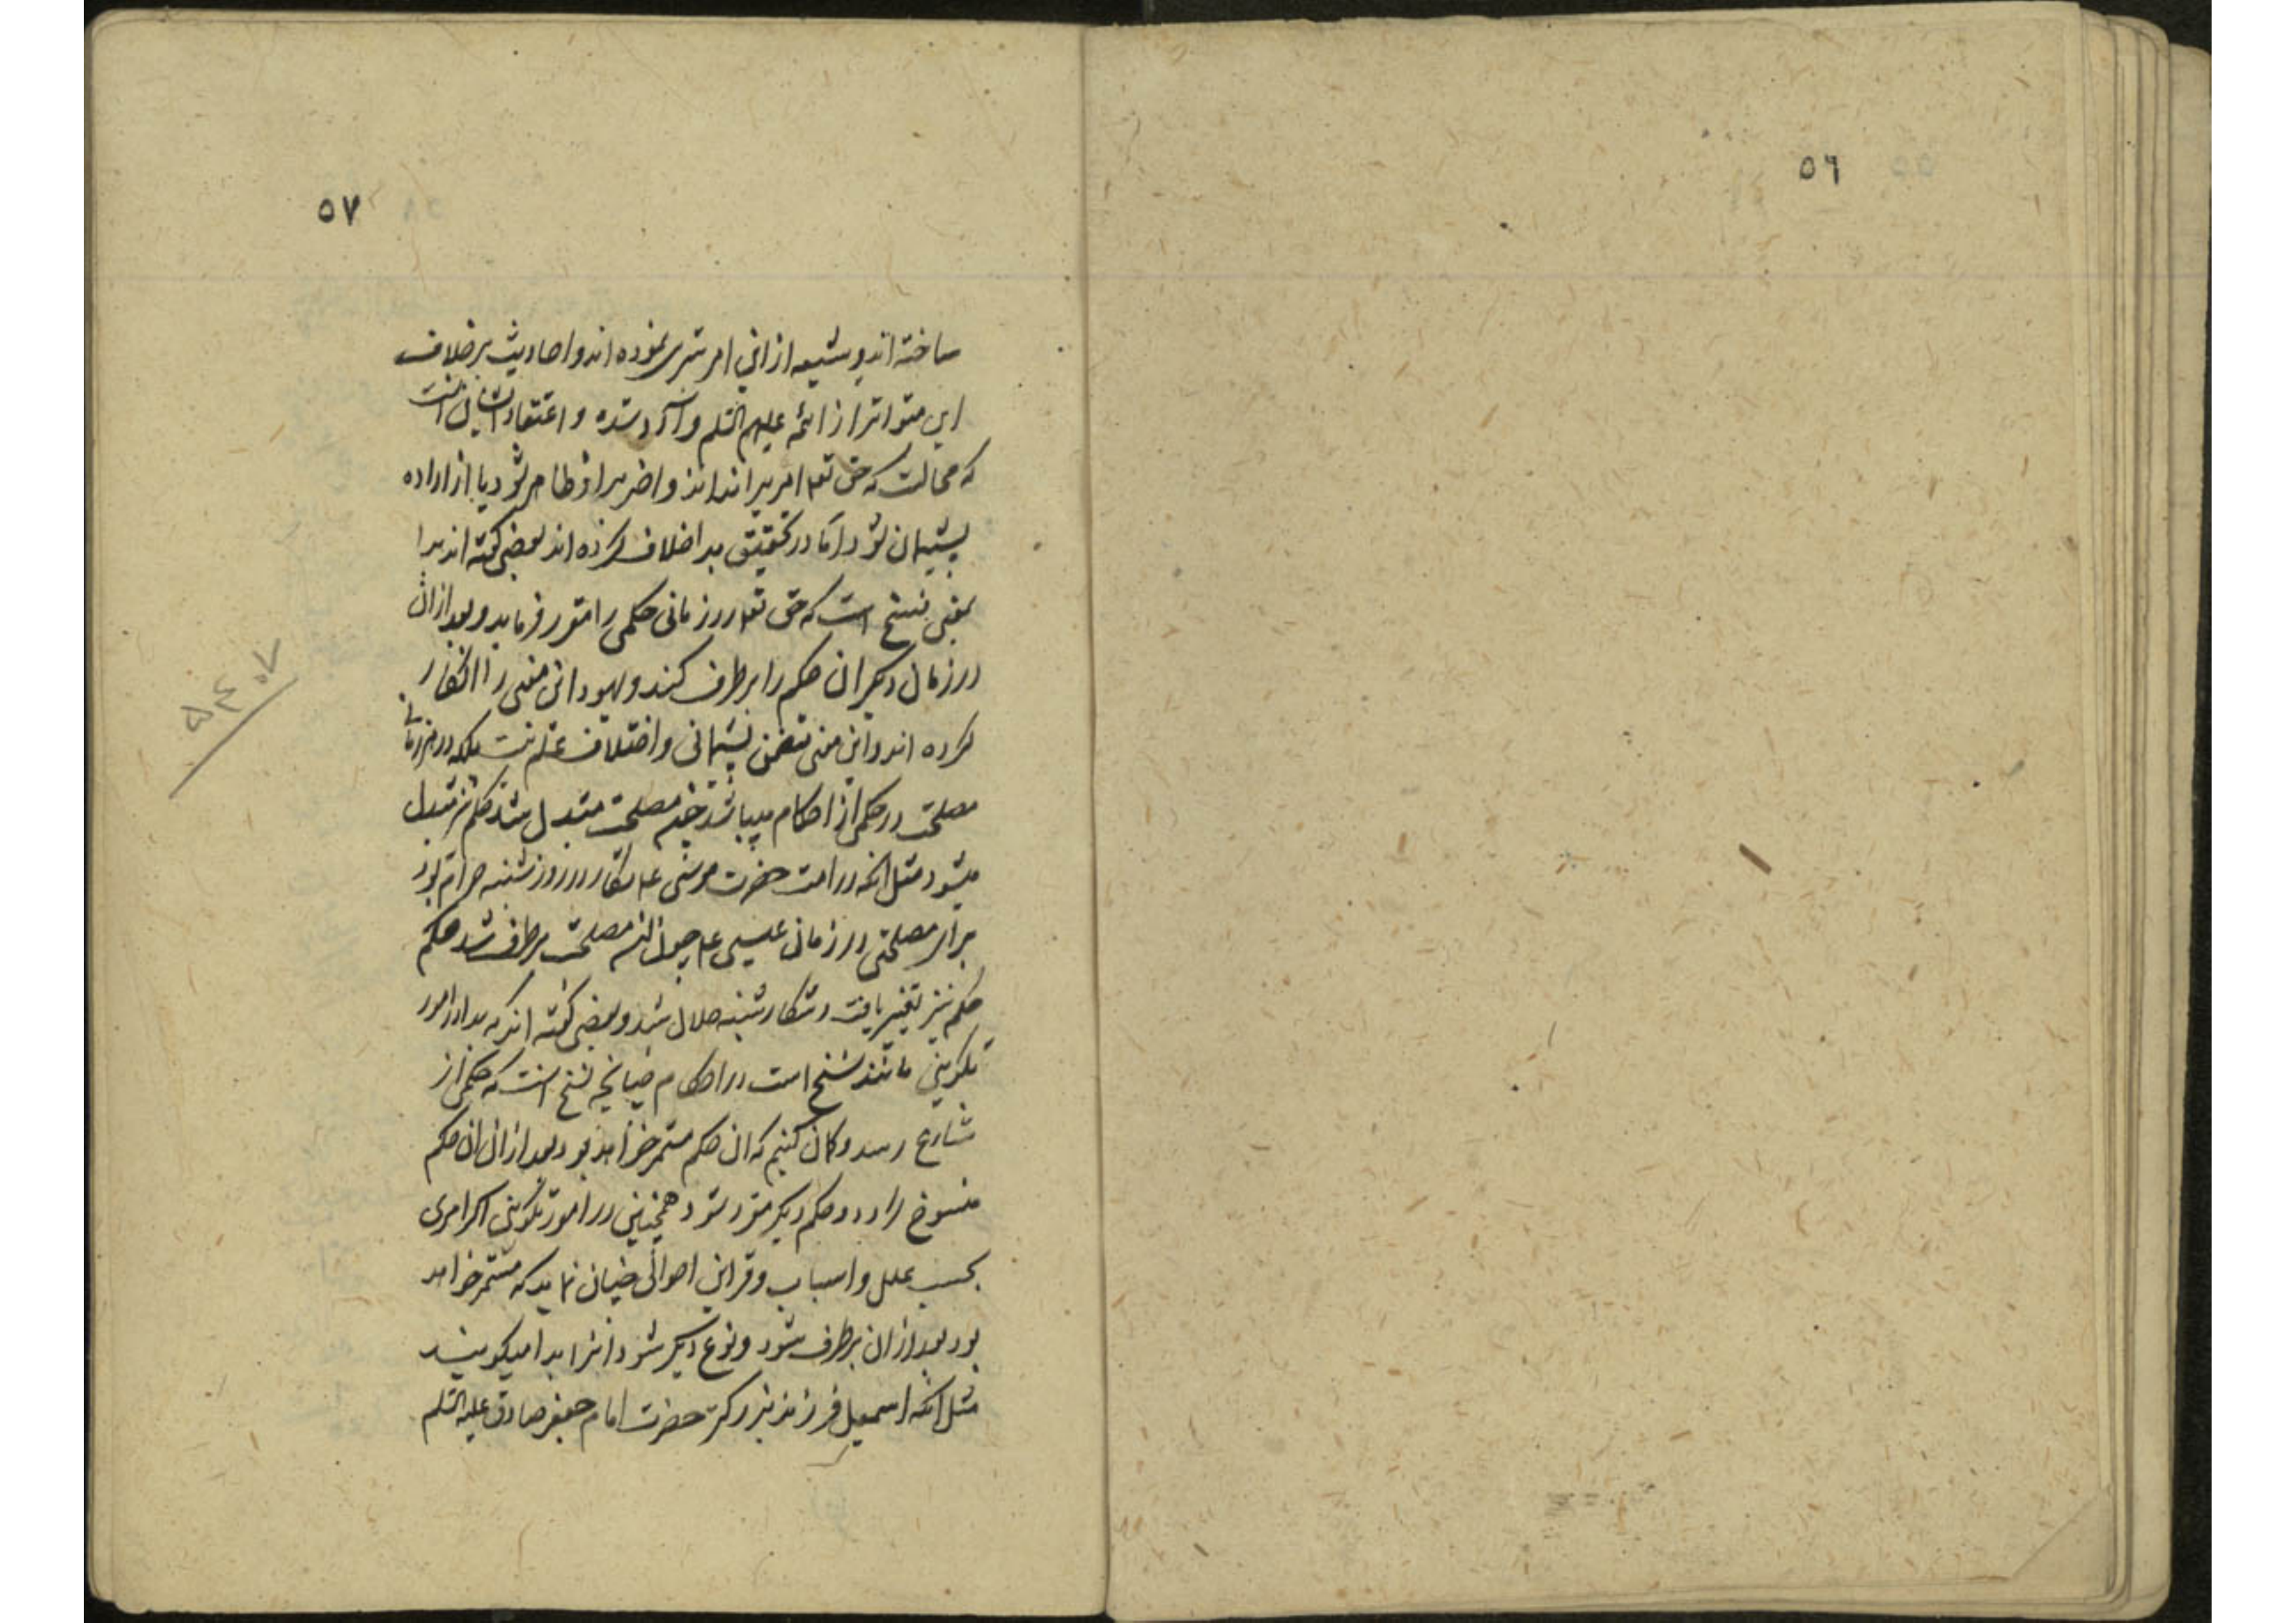 ٥٦
٥٧
ساخته اند و شیعه از این امر تبری نموده اند و احادیث بر خلاف
این متواتر از ائمه علیهم السلم وارد شده و اعتقاد ایشان انست
که محالست که حق تع امریرا نداند و اخر بر او ظاهر شود یا از اراده
پشیمان شود اما در تحقیق بدا خلاف کرده اند بعضی گفته اند بدا
بمعنی نسخ است که حق تع در زمانی حکمی را مقرر فرماید و بعد از ان
در زمان دیگر ان حکم را بر طرف کند و یهود این معنی را انکار
کرده اند و این معنی متضمن پشیمانی و اختلاف علم نیست بلکه در هر زمانی
مصلحت در حکمی از احکام میباشد چون مصلحت متبدل شد حکم نیز متبدل
میشود مثل انکه در امت حضرت موسی ع شکار در روز شنبه حرام بود
برای مصلحتی در زمان عیسی ع چون ان مصلحت بر طرف شد حکم
حکم نیز تغییر یافت و شکار شنبه حلال شد و بعضی گفته اند که بدا در امور
تکوینی مانند نسخ است در احکام چنانچه نسخ انست که حکمی از
شارع رسد و گمان کنیم که ان حکم مستمر خواهد بود بعد از ان ان حکم
منسوخ گردد و حکم دیگر مقرر شود همچنین در امور تکوینی اگر امری
بحسب علل و اسباب و قراین احوالی چنان نماید که مستمر خواهد
بود بعد از ان بر طرف شود و نوع دیگر شود انرا بدا میگویند
مثل انکه اسمعیل فرزند بزرگتر حضرت امام جعفر صادق علیه السلم